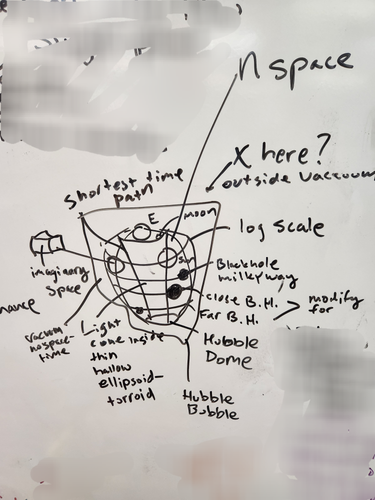 n space
X here?
outside vacuum
shortest time
path
E
moon
log scale
sun
Blackhole
milkyway
imaginary
space
close B.H.
Far B.H.
modify
for
nance
vacuum
no space-
time
Light
cone inside
thin
hallow
ellipsoid-
torroid
Hubble
Dome
Hubble
Bubble